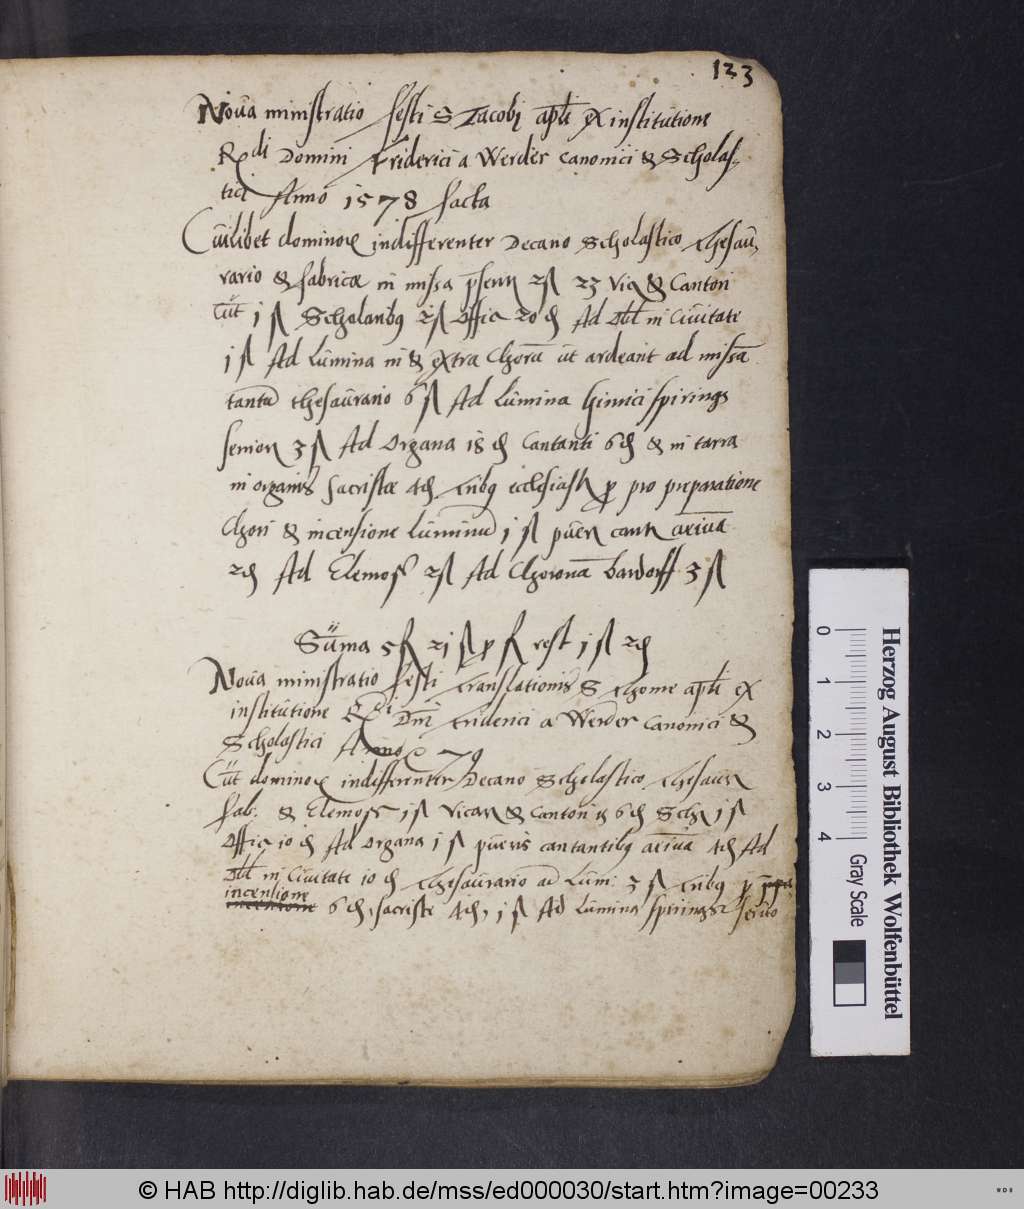 123
Noua ministratio festi S Jacobi apli ex institutione
R di Domini Friderici a Werder canonici & Scholas-
tici Anno 1578 facta
Cuilibet dominor indifferenter Decano Scholastico Thesau-
rario & fabricæ in missa 2 ß 23 Vic & Cantori
cuit 1 ß Scholaribus 2 ß offic 20 d Ad Obl in Ciuitate
1 ß Ad Lumina in & extra Chorū ut ardeant ad missā
tantū thesaurario 6 ß Ad Lumina hinrici spirings
senior 3 ß Ad Organa 18 d Cantanti 6 d & in tarra
in organis sacristæ 4 d pro preparatione
Chori & incensione Luminū 1 ß puer cant
2 d Ad Elemos 2 ß Ad Choronā bardorff 3 ß
Sūma 5 fl 21 ß rest 1 ß 2 d
Noua ministratio festi Translationis S Thome apli ex
institutione R di Dni Friderici a Werder canonici &
Scholastici Anno 79
Cuit dominor indifferenter Decano Scholastico Thesaur
fab. & Elemos 1 ß Vicar & Cantori 6 d Sch 1 ß
Offic 10 d Ad Organa 1 ß pueris cantantibus 4 d Ad
Obl in Ciuitate 10 d Thesaurario ad Lum: 3 ß
incensione
6 d, sacriste 4 d, 1 ß Ad Lumina Spirings
Herzog August Bibliothek Wolfenbüttel
0 1 2 3 4
Gray Scale
© HAB http://diglib.hab.de/mss/ed000030/start.htm?image=00233